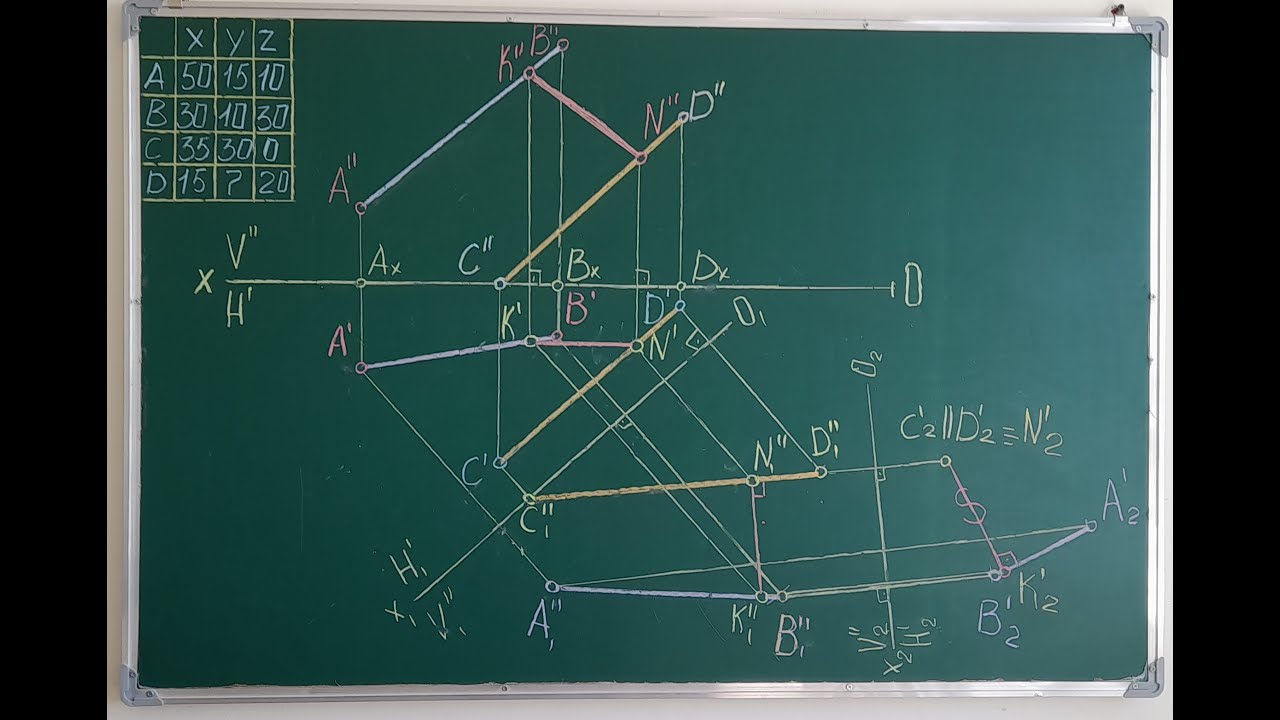 X Y Z
A 50 15 10
B 30 10 30
C 35 30 0
D 15 7 20
B"
K"
N" D"
A"
V"
X Ax C" Bx Dx O
H'
K' B' D' O₁
A' N'
O₂
C' N₁" D₁" C₂'||D₂'≡N₂'
C₁" A₂'
H₁'
X₁ V₁"
A₁" K₁" B₁" B₂' K₂'
V₂" H₂'
X₂